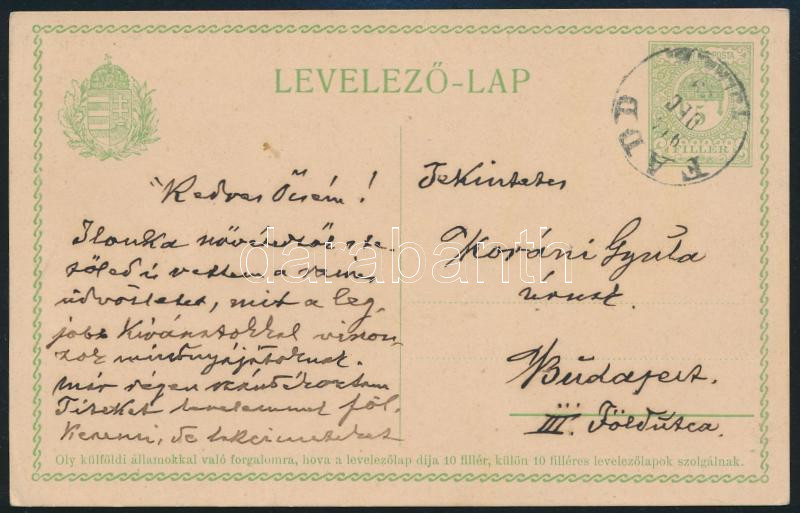 LEVELEZŐ-LAP
POSTA
5
FILLÉR
FADD
DEC
Kedves Öcsém!
Ilonka nővéredtől s te-
tőled is vettem a szives
üdvözletet, mit a leg-
jobb kivánatokkal viszon-
zok mindnyájatoknak.
már régen szándékoztam
Titeket levelemmel föl-
keresni, de lakcimeteket
Tekintetes
Koráni Gyula
úrnak.
Budapest.
III. Föld utca.
Oly külföldi államokkal való forgalomra, hova a levelezőlap dija 10 fillér, külön 10 filléres levelezőlapok szolgálnak.
darabanth